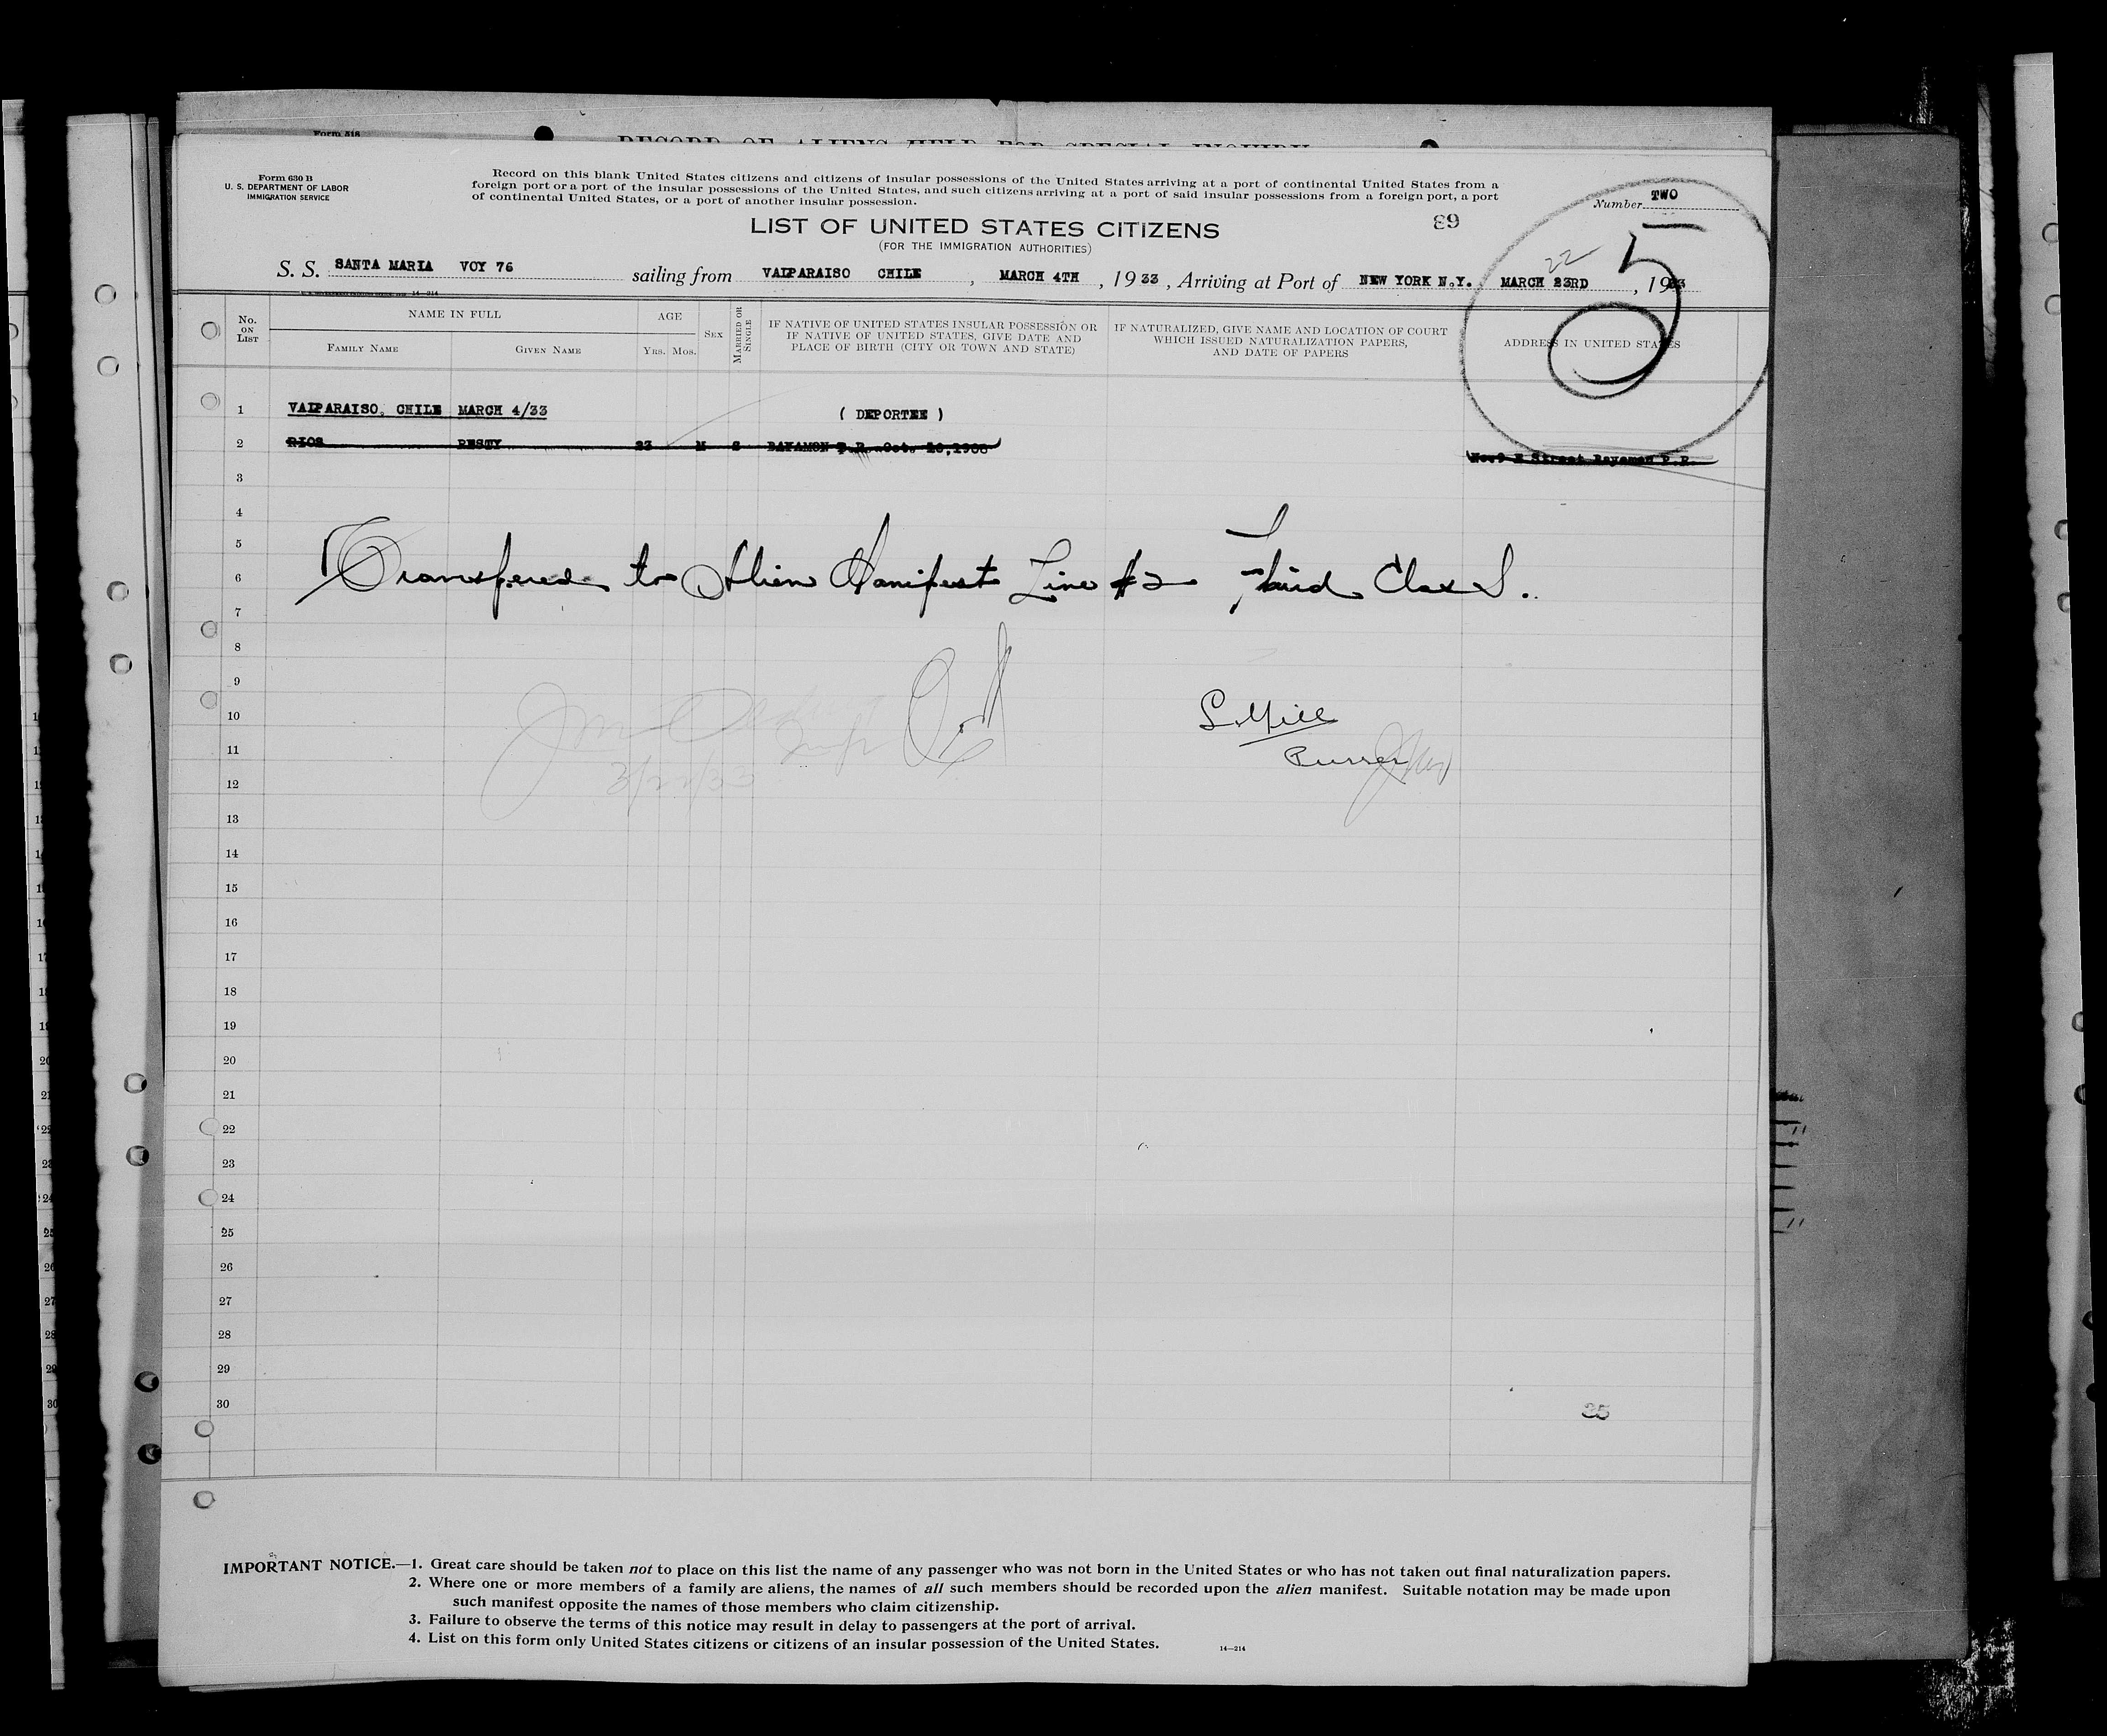 Form 518
RECORD OF ALIENS HELD FOR SPECIAL INQUIRY
Form 630 B
U. S. DEPARTMENT OF LABOR
IMMIGRATION SERVICE
Record on this blank United States citizens and citizens of insular possessions of the United States arriving at a port of continental United States from a
foreign port or a port of the insular possessions of the United States, and such citizens arriving at a port of said insular possessions from a foreign port, a port
of continental United States, or a port of another insular possession.
Number TWO
5
LIST OF UNITED STATES CITIZENS
(FOR THE IMMIGRATION AUTHORITIES)
22
S. S. SANTA MARIA VOY 76 sailing from VALPARAISO CHILE, MARCH 4TH, 1933, Arriving at Port of NEW YORK N.Y. MARCH 23RD, 1933
No. ON LIST
NAME IN FULL
FAMILY NAME
GIVEN NAME
AGE
YRS. MOS.
SEX
MARRIED OR SINGLE
IF NATIVE OF UNITED STATES INSULAR POSSESSION OR
IF NATIVE OF UNITED STATES, GIVE DATE AND
PLACE OF BIRTH (CITY OR TOWN AND STATE)
IF NATURALIZED, GIVE NAME AND LOCATION OF COURT
WHICH ISSUED NATURALIZATION PAPERS,
AND DATE OF PAPERS
ADDRESS IN UNITED STATES
1 VALPARAISO, CHILE MARCH 4/33 ( DEPORTEE )
2 RIOS RESTY 23 M S BAYAMON P.R. Oct. Street Bayamon P.R.
3
4
5
6 Transfered to Alien Manifest Line #2 Third Class.
7
8
9
10 Purser
11 3/22/33
12
13
14
15
16
17
18
19
20
21
22
23
24
25
26
27
28
29
30
35
IMPORTANT NOTICE.—1. Great care should be taken not to place on this list the name of any passenger who was not born in the United States or who has not taken out final naturalization papers.
2. Where one or more members of a family are aliens, the names of all such members should be recorded upon the alien manifest. Suitable notation may be made upon
such manifest opposite the names of those members who claim citizenship.
3. Failure to observe the terms of this notice may result in delay to passengers at the port of arrival.
4. List on this form only United States citizens or citizens of an insular possession of the United States.
14—214